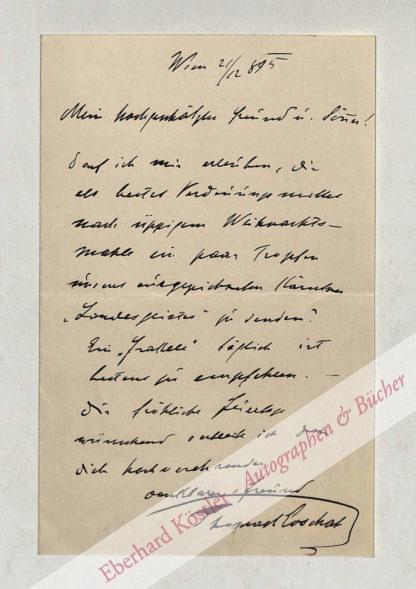 Wien 21/12 895
Mein hochgeschätzter Freund u. Gönner!
Darf ich mir erlauben, Dir
als bestes Verdauungsmittel
nach üppigem Weihnachts-
mahle ein paar Tropfen
unseres ausgezeichneten Kärntner
„Landesgeistes" zu senden?
Ein täglich ist
bestens zu empfehlen. —
Dir fröhliche Feiertage
wünschend verbleib ich Dein
Dich hochverehrender
dankbarer Freund
Koschat
Eberhard Köstler Autographen & Bücher